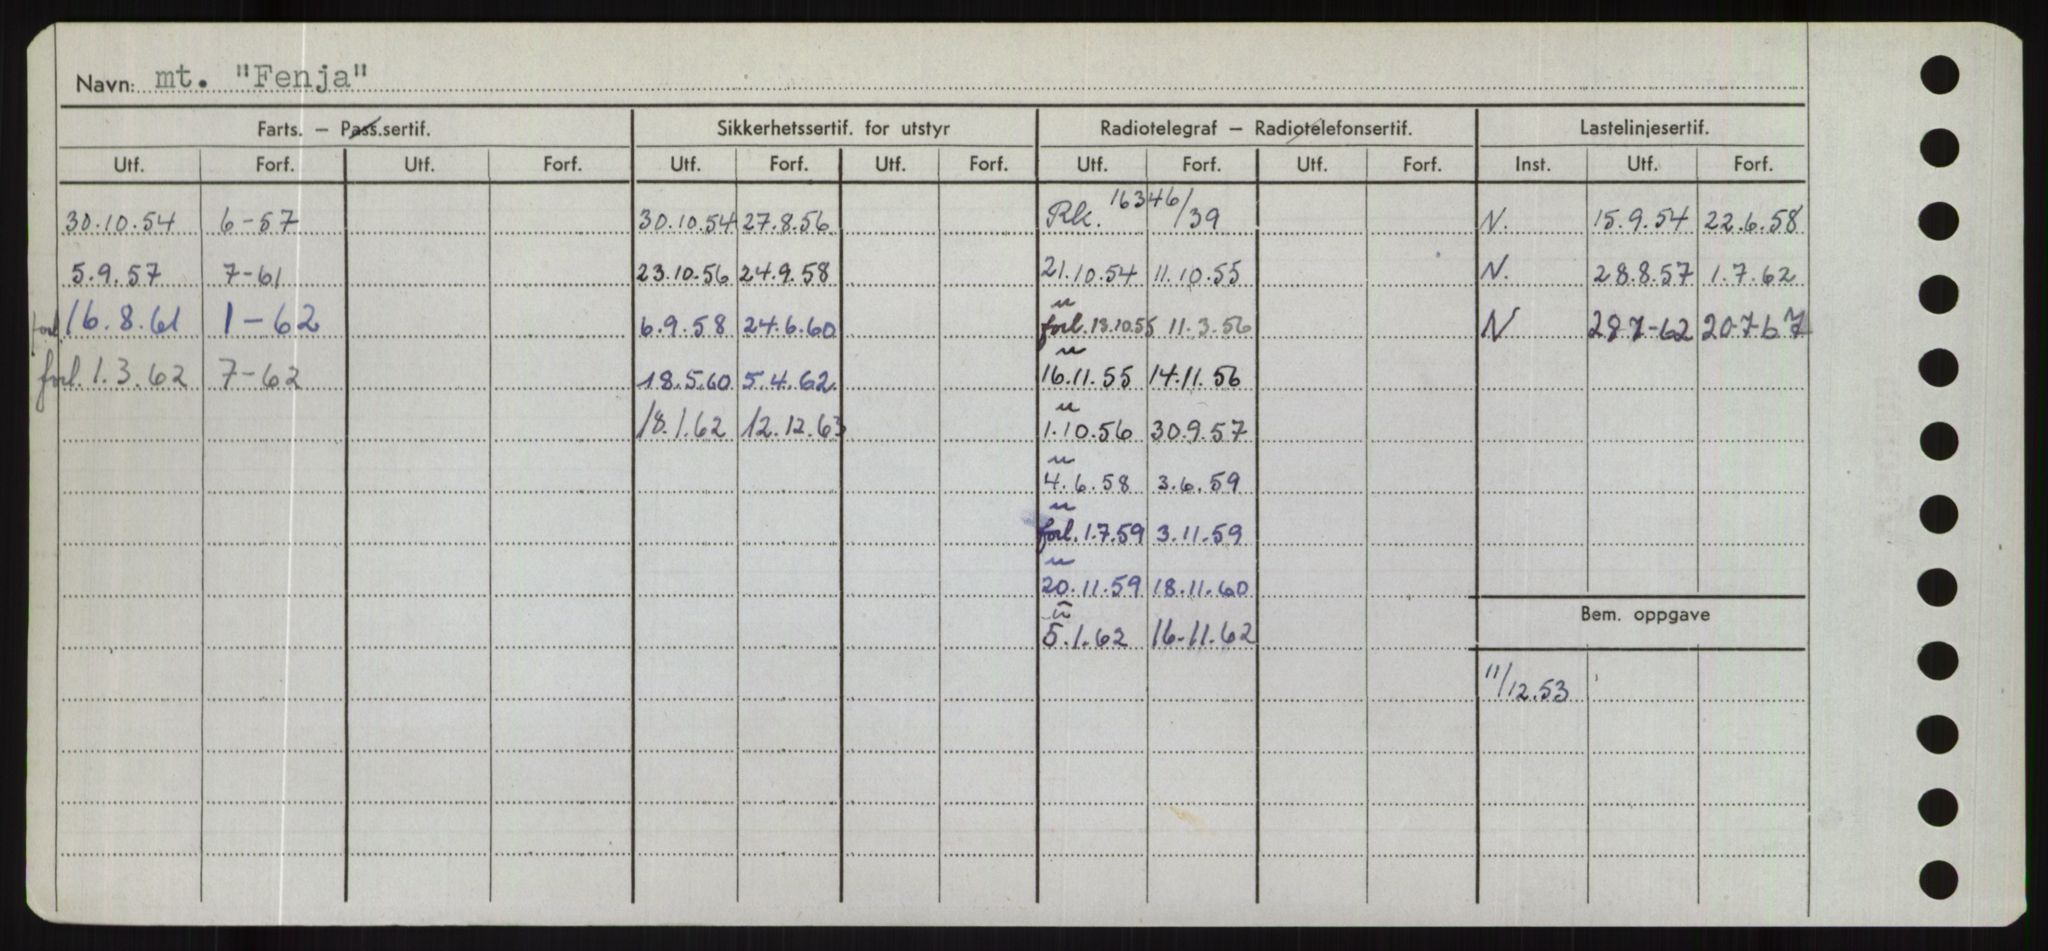 Navn: mt. "Fenja"
Farts. — Pass.sertif. Sikkerhetssertif. for utstyr Radiotelegraf — Radiotelefonsertif. Lastelinjesertif.
Utf. Forf. Utf. Forf. Utf. Forf. Utf. Forf. Utf. Forf. Utf. Forf. Inst. Utf. Forf.
30.10.54 6-57 30.10.54 27.8.56 Rk. 16346/39 N. 15.9.54 22.6.58
5.9.57 7-61 23.10.56 24.9.58 21.10.54 11.10.55 N. 28.8.57 1.7.62
u
forl. 16.8.61 1-62 6.9.58 24.6.60 forl. 13.10.55 11.3.56 N 28-7-62 20-7-67
u
forl. 1.3.62 7-62 18.5.60 5.4.62 16.11.55 14.11.56
u
18.1.62 12.12.63 1.10.56 30.9.57
u
4.6.58 3.6.59
u
forl. 1.7.59 3.11.59
u
20.11.59 18.11.60
Bem. oppgave
u
5.1.62 16-11.62
11/12.53